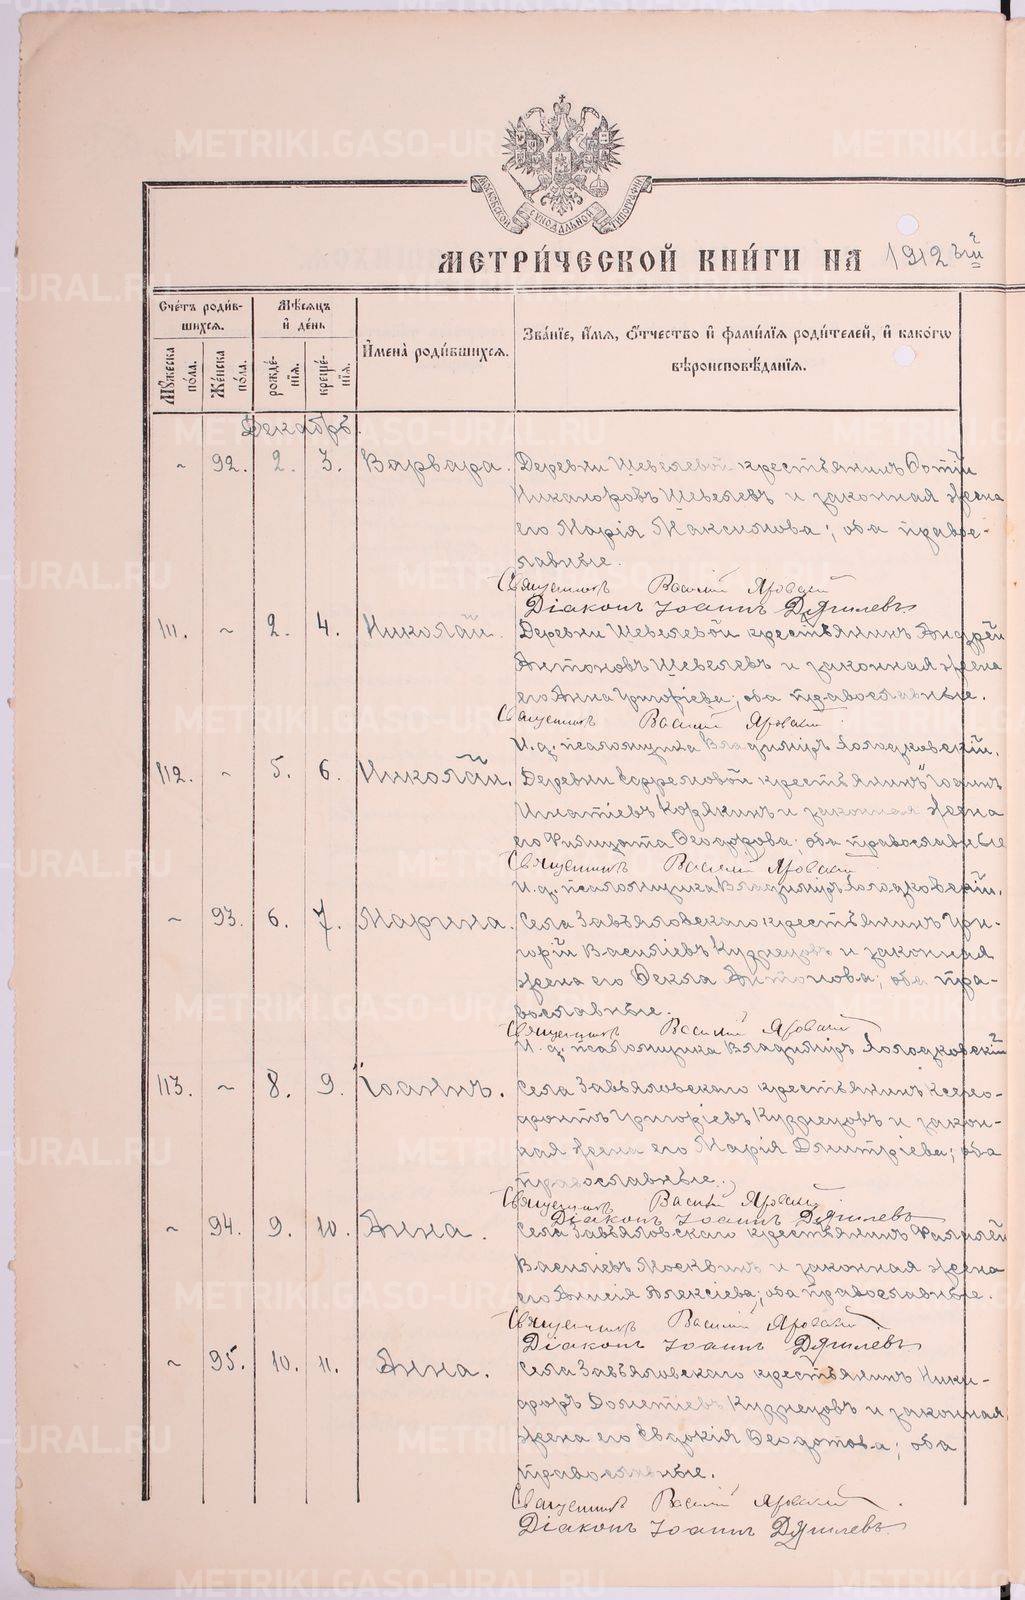 МОСКОВСКОЙ СѴНОДАЛЬНОЙ ТИПОГРАФІИ
МЕТРИ́ЧЕСКОЙ КНИ́ГИ НА 1912 й
Сче́тъ роди́вшихся.
Мѣ́сяцъ и де́нь
Имена̀ роди́вшихся.
Зва́нїе, и́мя, о́тчество и фами́лїя роди́телей, и какогѡ
вѣроисповѣ́данїя.
Мꙋ́жеска по́ла.
Же́нска по́ла.
рожде́нїя.
креще́нїя.
Декабрь.
~ 92. 2. 3. Варвара. Деревни Шевелевой крестьянинъ Фотій
Никаноровъ Шевелевъ и законная жена
его Марія Максимова; оба право-
славные.
Священникъ Василій Яровой
Діаконъ Іоаннъ Дягилевъ
111. ~ 2. 4. Николай. Деревни Шевелевой крестьянинъ Андрей
Антоновъ Шевелевъ и законная жена
его Анна Григорьева; оба православные.
Священникъ Василій Яровой
И. д. псаломщика Владиміръ Холодковскій.
112. ~ 5. 6. Николай. Деревни крестьянинъ Іоаннъ
Игнатіевъ Корякинъ и законная жена
его Филицата Ѳеодорова; оба православные
Священникъ Василій Яровой
И. д. псаломщика Владиміръ Холодковскій.
~ 93. 6. 7. Марина. Села Завьяловскаго крестьянинъ Гри-
горій Василіевъ Кузнецовъ и законная
жена его Ѳекла Антонова; оба пра-
вославные.
Священникъ Василій Яровой
И. д. псаломщика Владиміръ Холодковскій
113. ~ 8. 9. Іоаннъ. Села Завьяловскаго крестьянинъ Ксено-
фонтъ Григоріевъ Кузнецовъ и закон-
ная жена его Марія Димитріева; оба
православные.
Священникъ Василій Яровой
Діаконъ Іоаннъ Дягилевъ
~ 94. 9. 10. Анна. Села Завьяловскаго крестьянинъ
Василіевъ Москвинъ и законная жена
его Анисія Алексіева; оба православные.
Священникъ Василій Яровой
Діаконъ Іоаннъ Дягилевъ
~ 95. 10. 11. Анна. Села Завьяловскаго крестьянинъ Ники-
форъ Дометіевъ Кузнецовъ и законная
жена его Евдокія Ѳеодотова; оба
православные.
Священникъ Василій Яровой
Діаконъ Іоаннъ Дягилевъ
METRIKI.GASO-URAL.RU